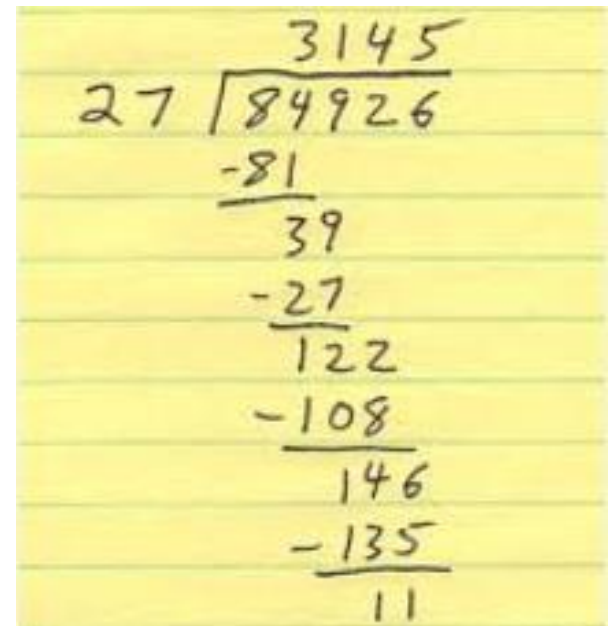 3145
27 84926
-81
39
-27
122
-108
146
-135
11